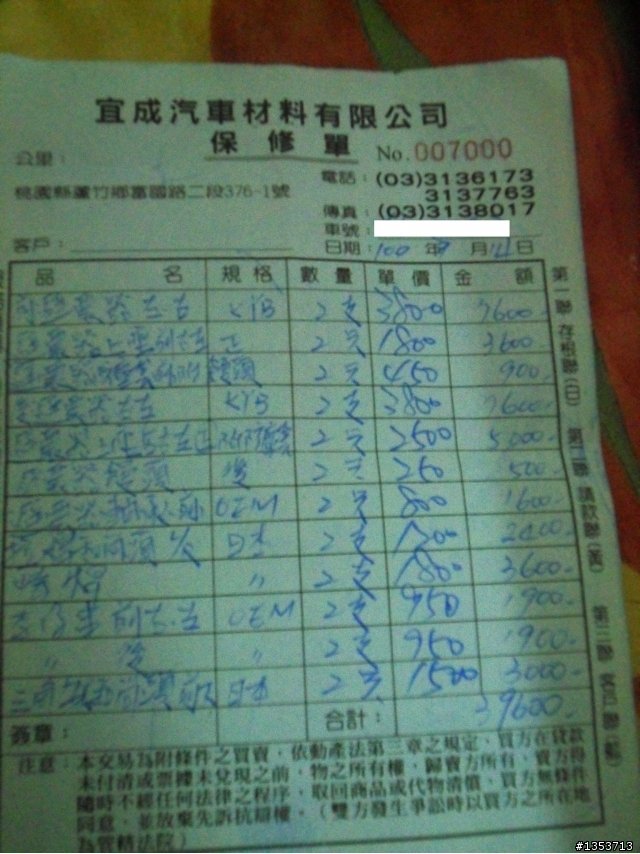 宜成汽車材料有限公司
保修單
No. 007000
公里：
電話：(03)3136173
3137763
桃園縣蘆竹鄉富國路二段376-1號
傳真：(03)3138017
車號：
客戶：
日期：100年9月14日
品名 規格 數量 單價 金額
KYB 2支 3800 7600-
2只 1800 3600-
2只 450 900-
KYB 2支 3800 7600-
2只 2500 5000-
後 2只 250 500-
OEM 2只 800 1600-
日本 2支 1200 2400-
〃 2支 1800 3600-
OEM 2支 950 1900-
〃 後 〃 2支 950 1900-
日本 2只 1500 3000-
簽章：
合計：
39600-
注意：本交易為附條件之買賣，依動產法第三章之規定，買方在貸款
未付清或票據未兌現之前，物之所有權，歸賣方所有，賣方得
隨時不經任何法律之程序，取回商品或代物清償，買方無條件
同意，並放棄先訴抗辯權。（雙方發生爭訟時以買方之所在地
為管轄法院）
第一聯 存根聯(白)
第二聯 請款聯(黃)
第三聯 客戶聯(藍)
#1353713